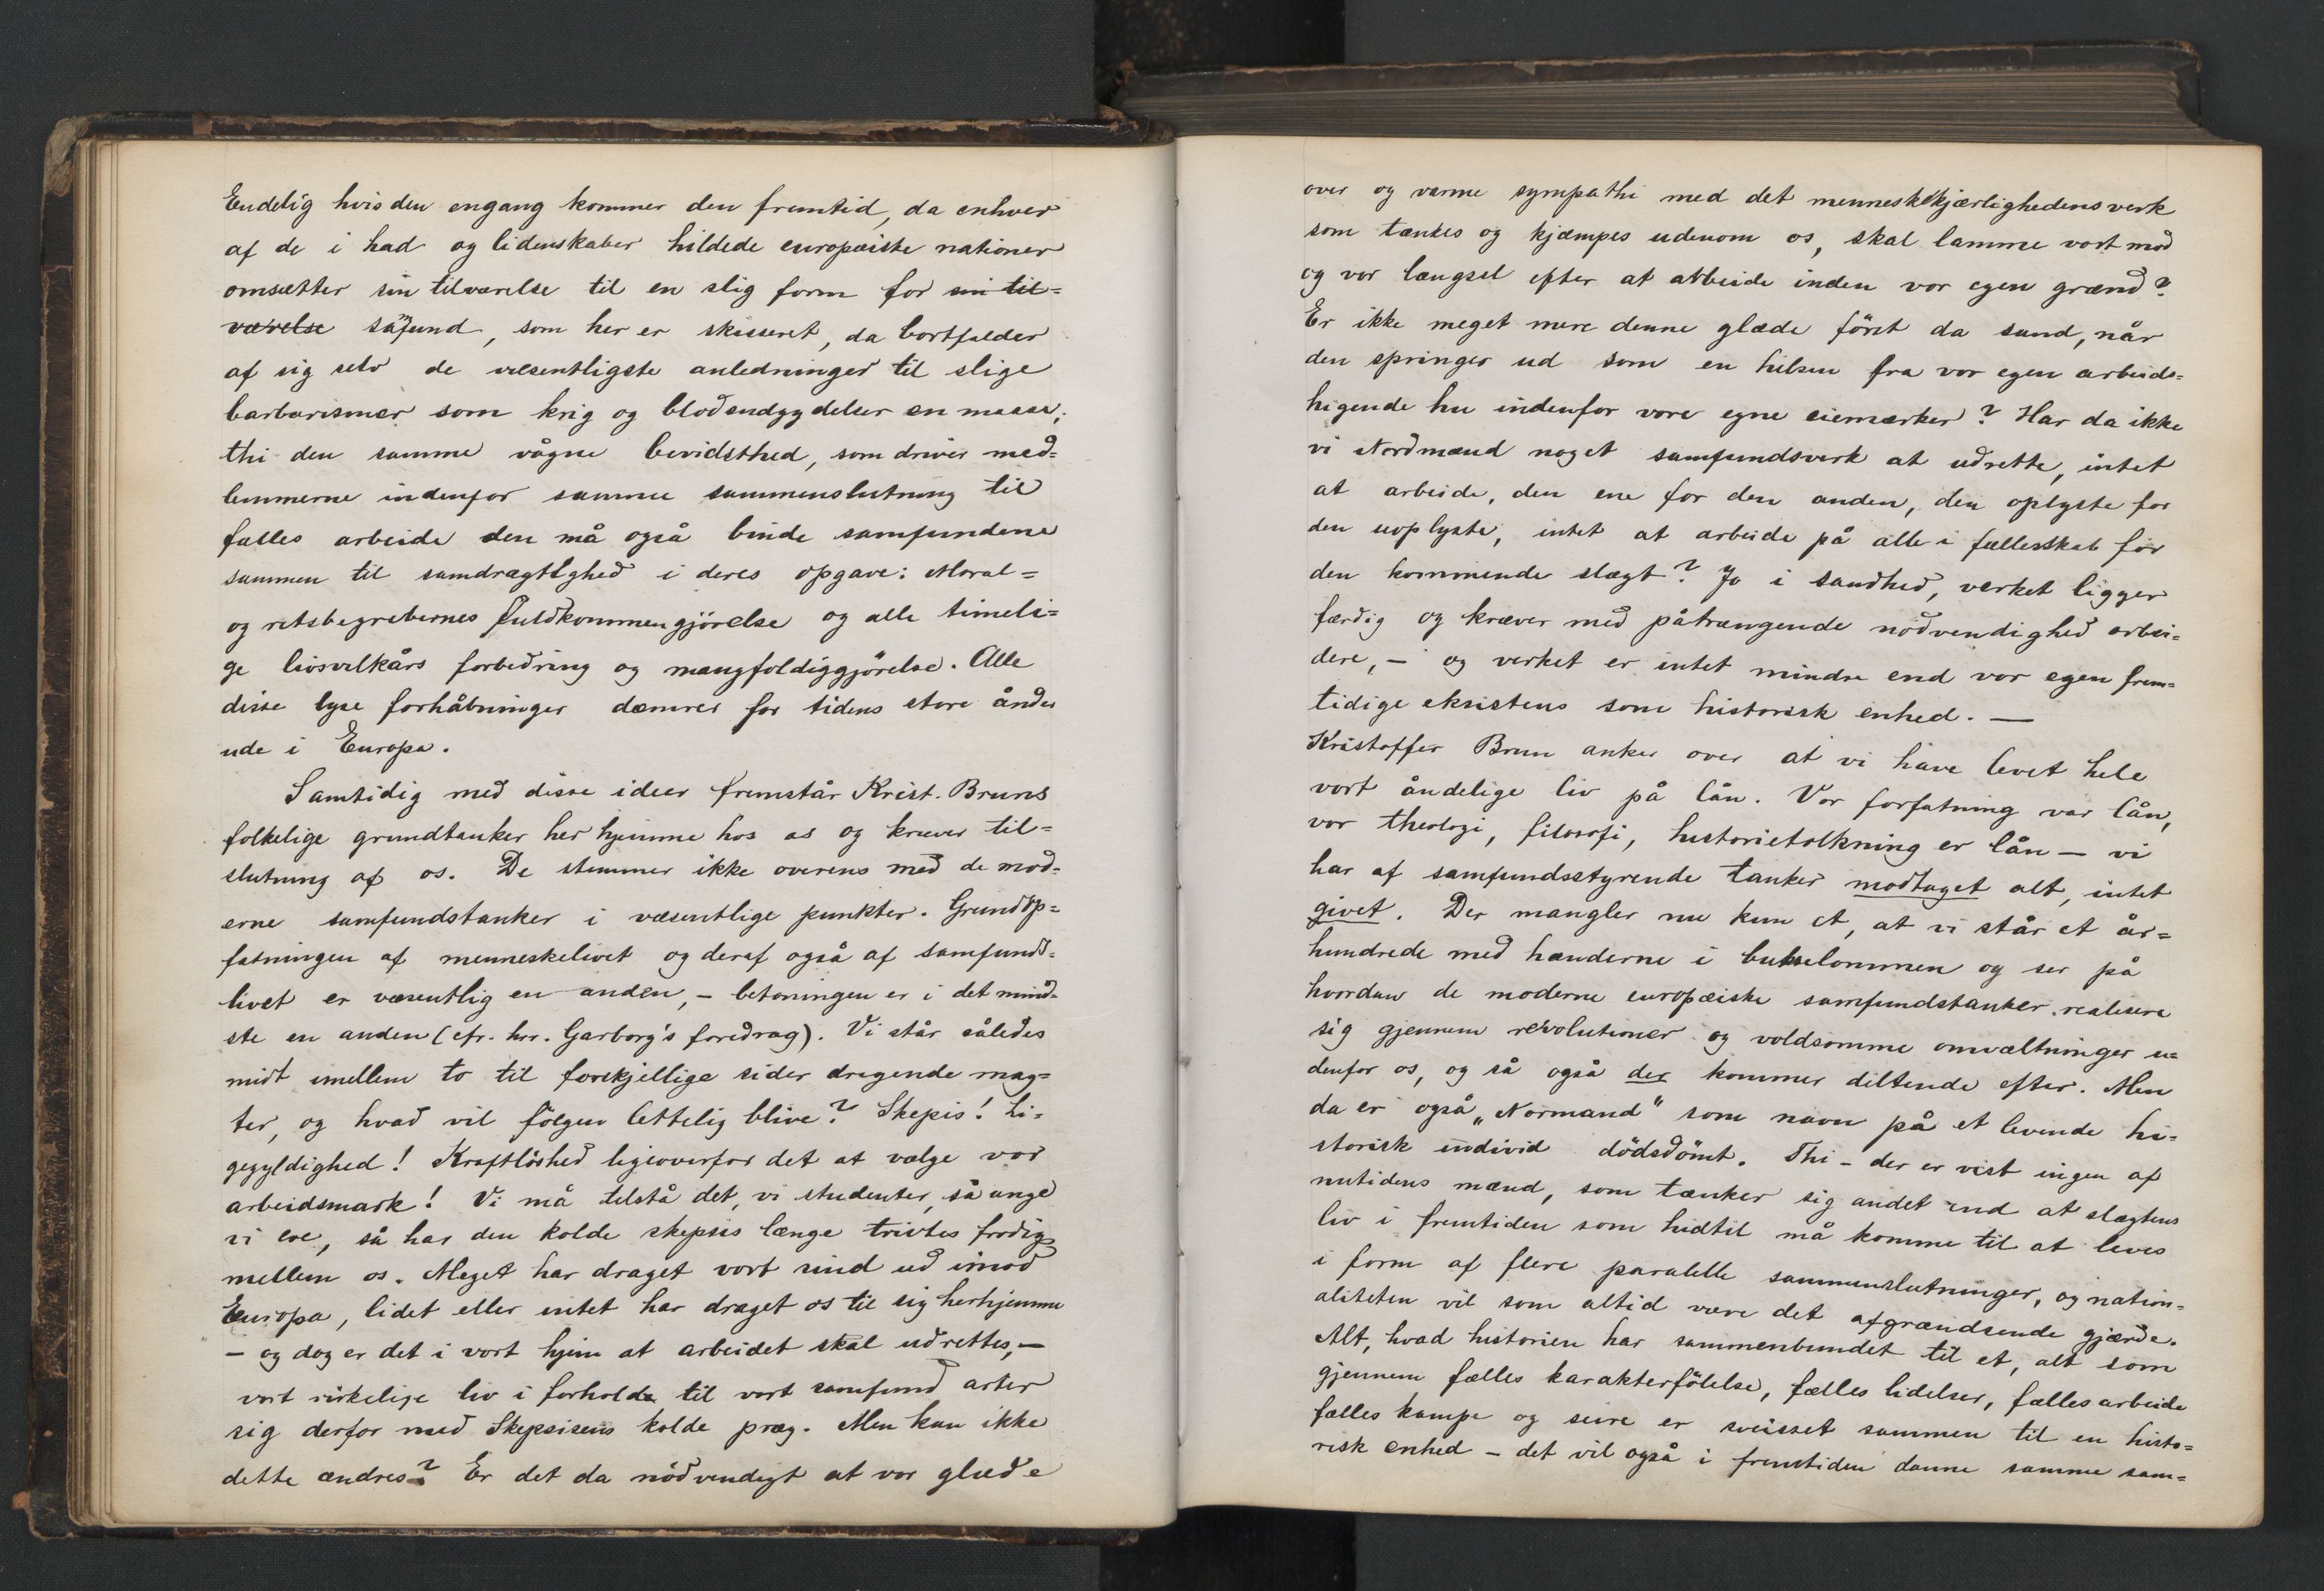 Endelig hvis den engang kommer den fremtid, da enhver
af de i had og lidenskaber hildede europæiske nationer
omsætter sin tilværelse til en slig form for sin til=
værelse sam̄fund, som her er skisseret, da bortfalder
af sig selv de væsentligste anledninger til slige
barbarismer som krig og blodsudgydelser en masse;
thi den samme vågne bevidsthed, som driver med=
lemmerne indenfor samme sammenslutning til
fælles arbeide den må også binde samfundene
sammen til samdrægtighed i deres opgave: Moral=
og retsbegrebernes fuldkommengjörelse og alle timeli=
ge livsvilkårs forbedring og mangfoldiggjörelse. Alle
disse lyse forhåbninger dæmrer for tidens store ånder
ude i Europa.
Samtidig med disse ideer fremstår Krist. Bruns
folkelige grundtanker her hjemme hos os og kræver til=
slutning af os. De stemmer ikke overens med de mod=
erne samfundstanker i væsentlige punkter. Grundop=
fatningen af menneskelivet og deraf også af samfunds=
livet er væsentlig en anden, – betoningen er i det mind=
ste en anden (cfr. hrr. Garborg's foredrag). Vi står således
midt imellem to til forskjellige sider dragende mag=
ter, og hvad vil fölgen lettelig blive? Skepis! Li=
gegyldighed! Kraftlöshed ligeoverfor det at vælge vor
arbeidsmark! Vi må tilstå det, vi studenter, så unge
vi ere, så har den kolde skepsis længe trivtes frodig
mellem os. Meget har draget vort sind ud imod
Europa, lidet eller intet har draget os til sig herhjemme
– og dog er det i vort hjem at arbeidet skal udrettes, –
vort virkelige liv i forhold til vort samfund arter
sig derfor med Skepsisens kolde præg. Men kan ikke
dette ændres? Er det da nödvendigt at vor glæde
over og varme sympathi med det menneskekjærlighedensverk
som tænkes og kjæmpes udenom os, skal lamme vort mod
og vor længsel efter at arbeide inden vor egen grænd?
Er ikke meget mere denne glæde först da sund, når
den springer ud som en hilsen fra vor egen arbeids=
higende hu indenfor vore egne eiemærker? Har da ikke
vi Nordmænd noget samfundsverk at udrette, intet
at arbeide, den ene for den anden, den oplyste for
den uoplyste, intet at arbeide på alle i fællesskab for
den kommende slægt? Jo i sandhed, verket ligger
færdig og kræver med påtrængende nödvendighed arbei=
dere, – og verket er intet mindre end vor egen frem=
tidige eksistens som historisk enhed. –
Kristoffer Brun anker over at vi have levet hele
vort åndelige liv på lån. Vor forfatning var lån,
vor theologi, filosofi, historietolkning er lån – vi
har af samfundsstyrende tanker modtaget alt, intet
givet. Der mangler nu kun et, at vi står et år=
hundrede med hænderne i bukselommen og ser på
hvordan de moderne europæiske samfundstanker realisere
sig gjennem revolutioner og voldsomme omvæltninger u=
denfor os, og så også der kommer diltende efter. Men
da er også „Normand" som navn på et levende hi=
storisk individ dödsdömt. Thi – der er vist ingen af
nutidens mænd, som tænker sig andet end at slægtens
liv i fremtiden som hidtil må komme til at leves
i form af flere paralelle sammenslutninger, og nation=
aliteten vil som altid være det afgrændsende gjærde.
Alt, hvad historien har sammenbundet til et, alt som
gjennem fælles karakterfölelse, fælles lidelser, fælles arbeide
fælles kampe og seire er sveisset sammen til en histo=
risk enhed – det vil også i fremtiden danne samme sam=